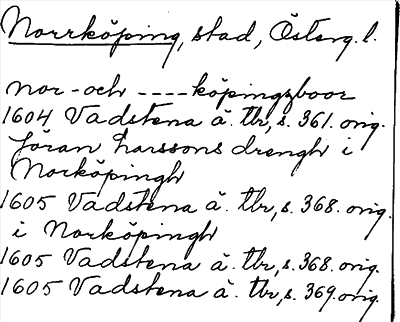 Norrköping, stad, Österg.l.
nor-och ----köpingzboor
1604 Vadstena ä. tbr, s. 361. orig.
Jöran Larssons drengh i
Norköpingh
1605 Vadstena ä. tbr, s. 368. orig.
i Norköpingh
1605 Vadstena ä. tbr, s. 368. orig.
1605 Vadstena ä. tbr, s. 369. orig.